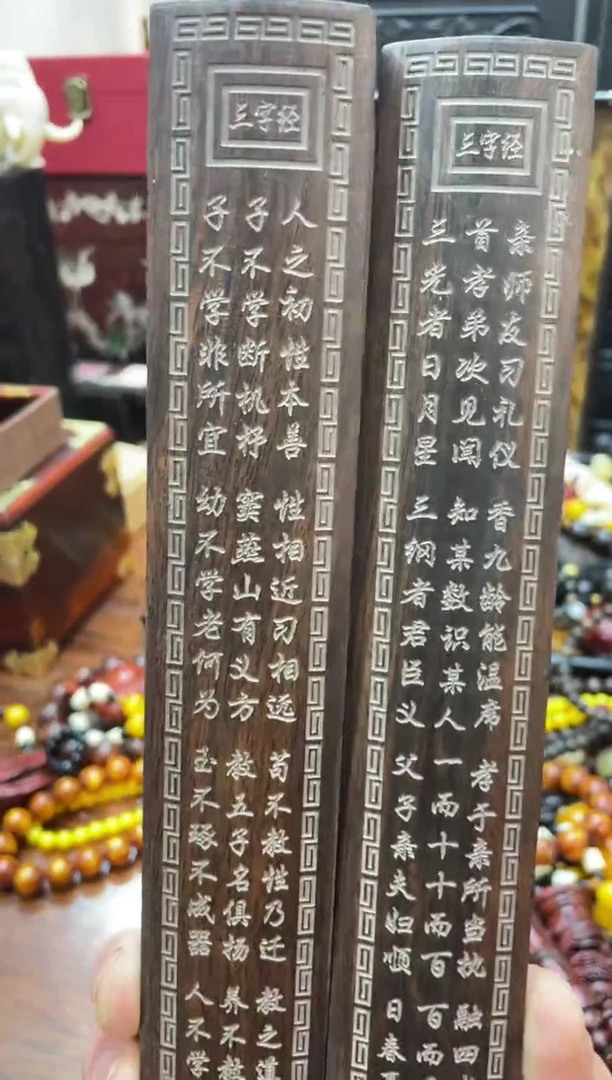 三字经
人之初性本善 性相近习相远 苟不教性乃迁 教之道
子不学断机杼 窦燕山有义方 教五子名俱扬 养不教
子不学非所宜 幼不学老何为 玉不琢不成器 人不学
三字经
亲师友习礼仪 香九龄能温席 孝于亲所当执 融四
首孝弟次见闻 知某数识某人 一而十十而百 百而
三光者日月星 三纲者君臣义 父子亲夫妇顺 日春